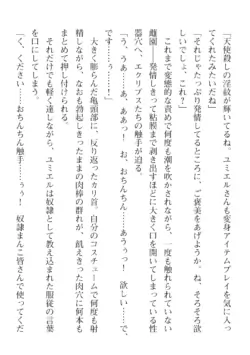 「天使殺しの淫紋が、ユミエルさんの変身アイテムプレイを気に入っ
てくれたみたいだね」
「それじゃたっぷり発情してるところに、ご褒美をあげようか、ね、そろそろ欲
しいでしょ？」
これまで変態的な責めで何度も潮を吹かされながら、一度も触れられていない
雌園──発情しきって粘膜まで剥き出すほどに大きく口を開いているユミエルの
蜜穴へ、エクリプスたちの触手が迫る。
「う、う……あ、ああぁっ！　お、おちんちん……あうっっ！　欲しい……で、
す……！」
大きく膨らんだ亀頭部に、反り返ったカリ首。自分のコスチュームで何度も射
精しながら、なおも勃起しきったままの肉棒の群れが、飢えきった肉穴に何本も
まとめて押し付けられる。
それだけでも軽く達しながら、ユミエルは奴隷として教え込まれた服従の言葉
を口にしてしまう。
「く、ください……おちんちん触手……ぅぅ！　奴隷まんこ皆さんで使ってくだ